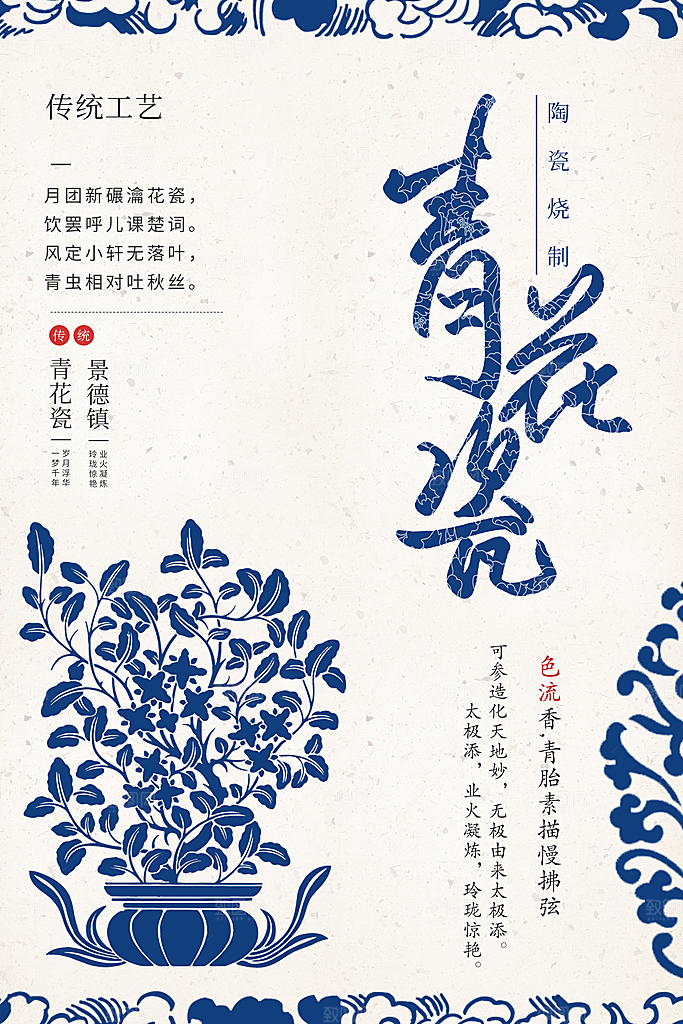 传统工艺
月团新碾瀹花瓷，
饮罢呼儿课楚词。
风定小轩无落叶，
青虫相对吐秋丝。
传统
青花瓷
岁月浮华
一梦千年
景德镇
业火凝炼
玲珑惊艳
陶瓷烧制
青花瓷
色流香.青胎素描慢拂弦
可参造化天地妙，无极由来太极添。
太极添，业火凝炼，玲珑惊艳。